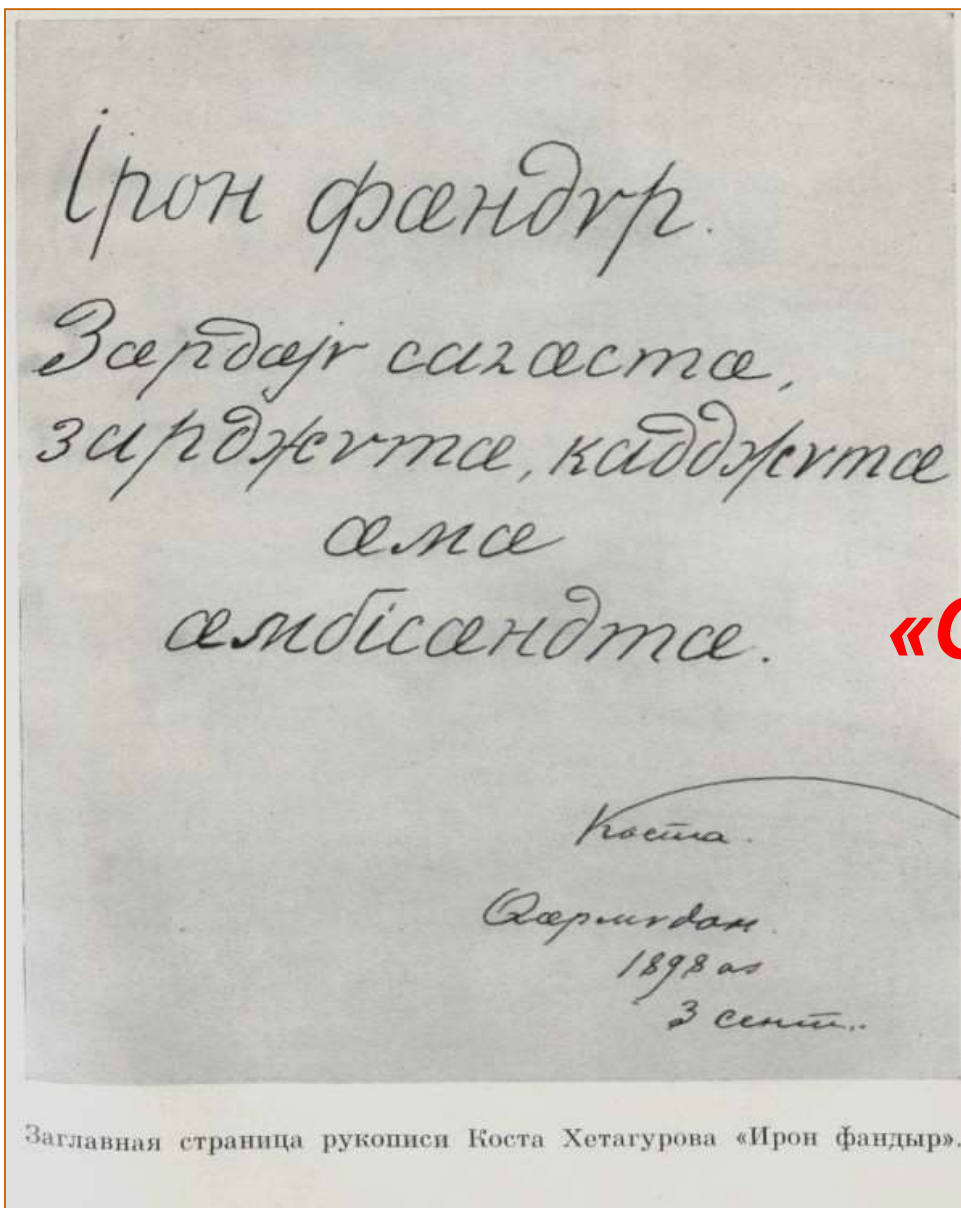 Ірон фӕндѵр.
Зӕрдӕјѵ сагӕстӕ,
зарджѵтӕ, кадджѵтӕ
ӕмӕ
ӕмбісӕндтӕ.
«О
Коста.
Qӕрмѵдон.
1898 аз
3 сент..
Заглавная страница рукописи Коста Хетагурова «Ирон фандыр».